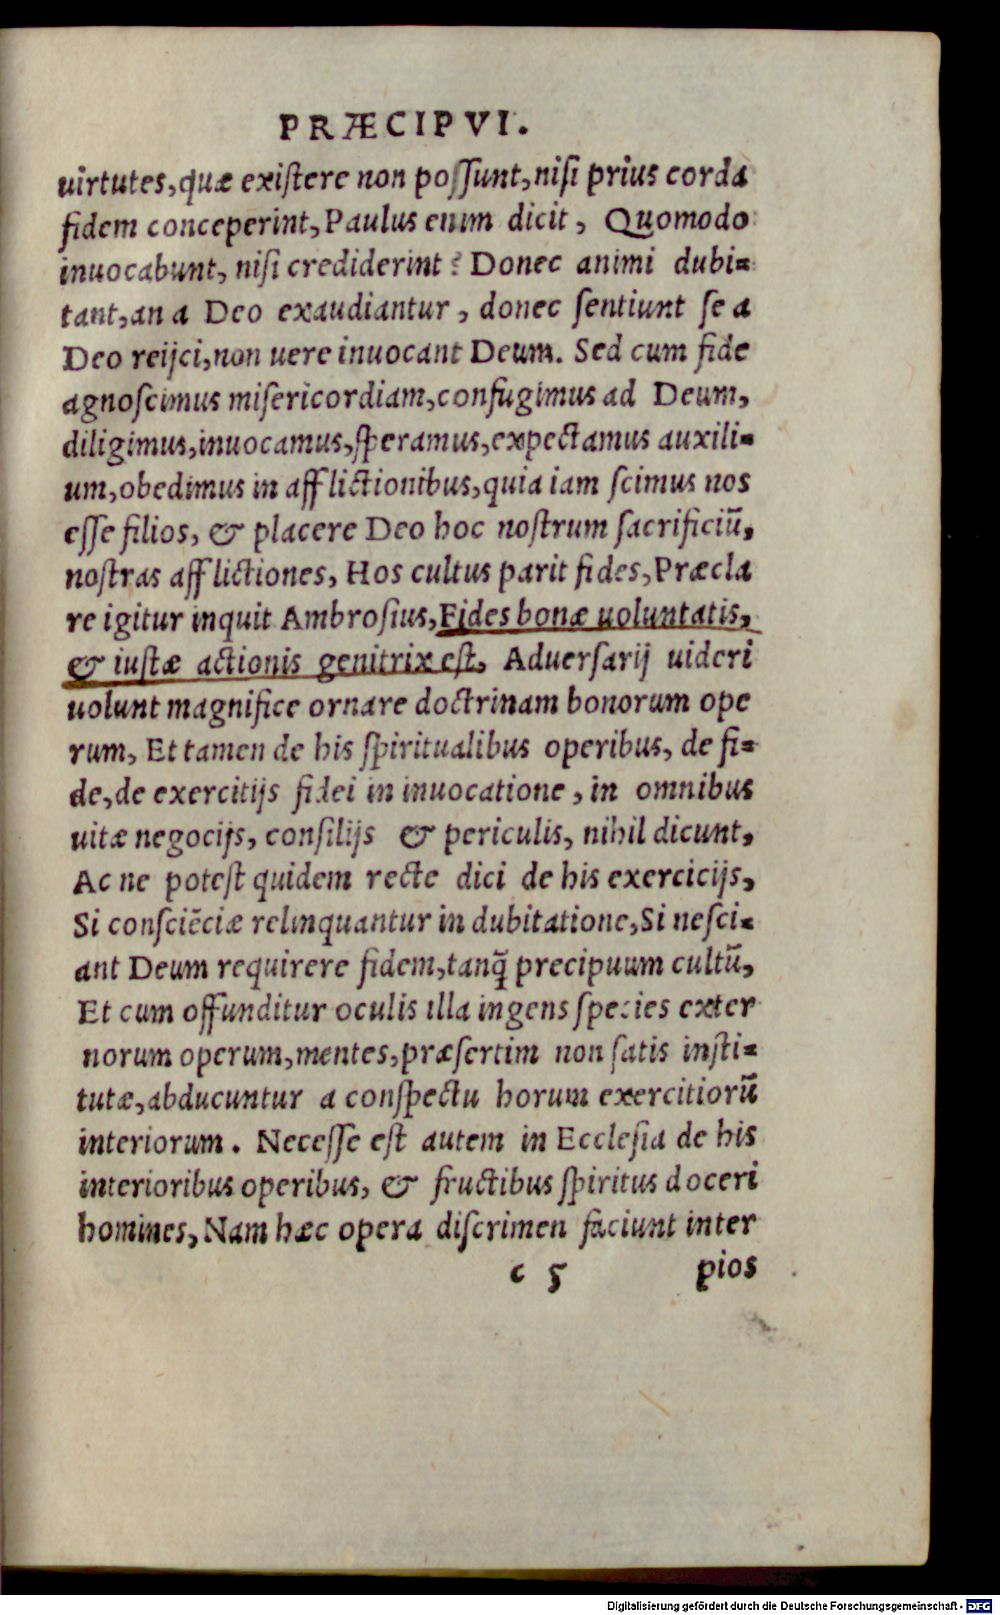 PRÆCIPVI.
uirtutes,quæ existere non possunt,nisi prius corda
fidem conceperint,Paulus enim dicit, Quomodo
inuocabunt, nisi crediderint? Donec animi dubi=
tant,an a Deo exaudiantur, donec sentiunt se a
Deo reijci,non uere inuocant Deum. Sed cum fide
agnoscimus misericordiam,confugimus ad Deum,
diligimus,inuocamus,speramus,expectamus auxili=
um,obedimus in afflictionibus,quia iam scimus nos
esse filios, & placere Deo hoc nostrum sacrificiū,
nostras afflictiones, Hos cultus parit fides,Præcla
re igitur inquit Ambrosius,Fides bonæ uoluntatis,
& iustæ actionis genitrix est, Aduersarij uideri
uolunt magnifice ornare doctrinam bonorum ope
rum, Et tamen de his spiritualibus operibus, de fi=
de,de exercitijs fidei in inuocatione, in omnibus
uitæ negocijs, consilijs & periculis, nihil dicunt,
Ac ne potest quidem recte dici de his exercicijs,
Si consciēciæ relinquantur in dubitatione,Si nesci=
ant Deum requirere fidem,tanq̃ precipuum cultū,
Et cum offunditur oculis illa ingens species exter
norum operum,mentes,præsertim non satis insti=
tutæ,abducuntur a conspectu horum exercitiorū
interiorum. Necesse est autem in Ecclesia de his
interioribus operibus, & fructibus spiritus doceri
homines,Nam hæc opera discrimen faciunt inter
c 5 pios
Digitalisierung gefördert durch die Deutsche Forschungsgemeinschaft - DFG